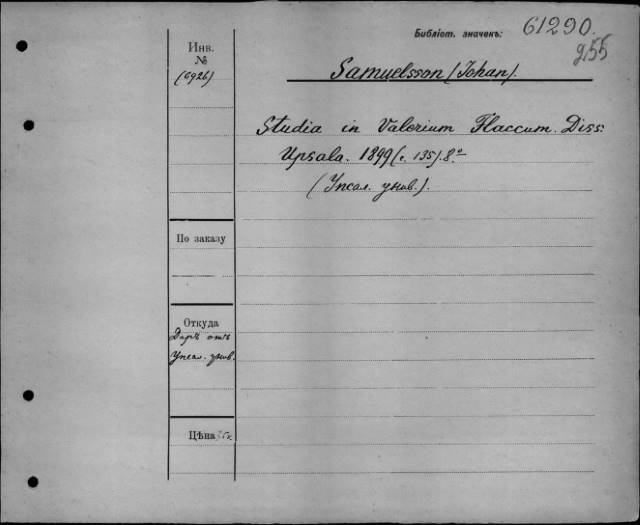 Библіот. значекъ: 61290.
Инв.
№
(6926)
Samuelsson (Johan).
Studia in Valerium Flaccum. Diss:
Upsala. 1899 (с. 135). 8.°
(Упсал. унив.).
По заказу
Откуда
Даръ отъ
Упсал. унив.
Цѣна